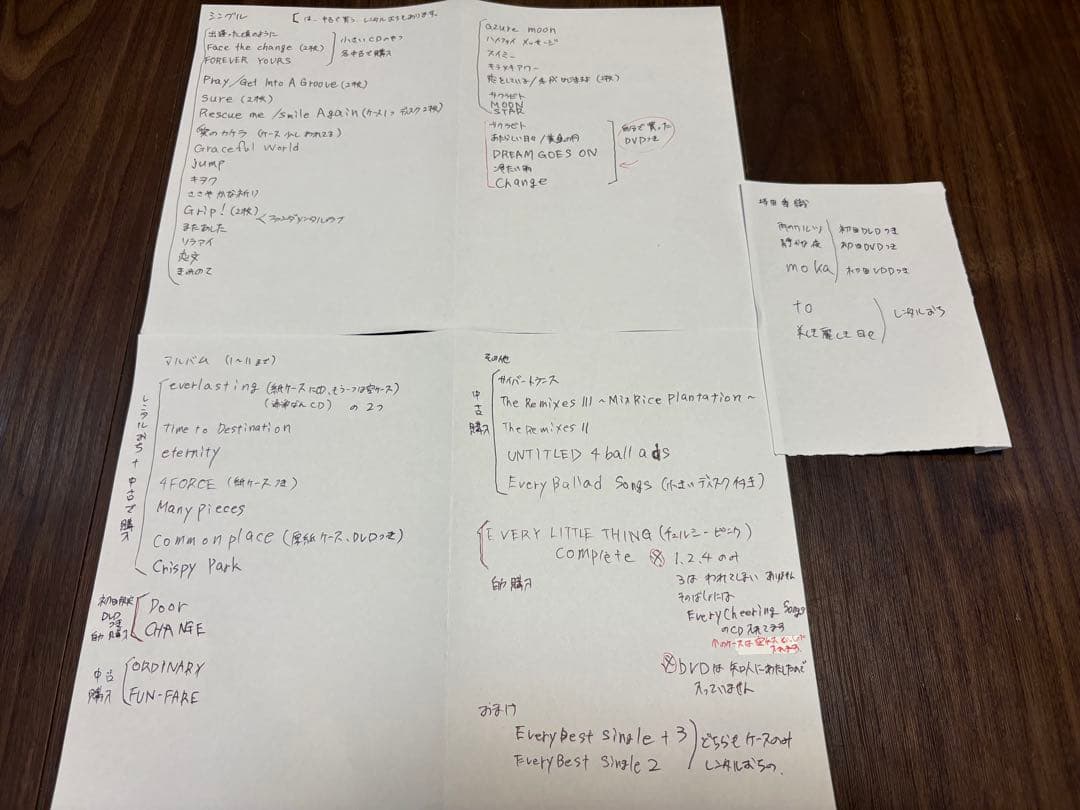 シングル
[ は、中古で買う、レンタルおちもあります。
出逢った頃のように
Face the change (2枚)
FOREVER YOURS
小さいCDのやつ
全中古で購入
Pray/Get Into A Groove (2枚)
sure (2枚)
Rescue me /smile Again (ケース1つ ディスク2枚)
愛のカケラ (ケース 少し われてる)
Graceful World
Jump
キヲク
ささやかな祈り
Grip! (2枚)
ファンダメンタルラブ
またあした
ソラアイ
恋文
きみのて
azure moon
ハイファイ メッセージ
スイミー
キラメキアワー
恋をしている/冬がはじまるよ (2枚)
サクラビト
MOON
STAR
サクラビト
あたらしい日々/黄金の月
DREAM GOES ON
冷たい雨
Change
自分で買った
DVDつき
持田香織
雨のワルツ
静かな夜
moka
初回DVDつき
初回DVDつき
初回DVDつき
to
美しき麗しき日々
レンタルおち
アルバム (1〜11まで)
レンタルおち+中古で購入
everlasting (紙ケースにCD、もう一つは空ケース)
(通常なんCD) の2つ
Time to Destination
eternity
4FORCE (紙ケースつき)
Many pieces
commonplace (厚紙ケース、DVDつき)
Crispy Park
初回限定
DVD
つき
自分 購入
Door
CHANGE
中古
購入
ORDINARY
FUN-FARE
その他
中古
購入
サイバートランス
The Remixes III ~Mix Rice Plantation~
The Remixes II
UNTITLED 4 ballads
Every Ballad Songs (小さいディスク付き)
EVERY LITTLE THING (チェルシーピンク)
Complete ※ 1.2.4のみ
3は われてしまい ありません
そのばしょには
EveryCheering Songs
のCD 入れてます
↑のケースは空ケースといっしょに
入れます。
自分 購入
※ DVDは 知人にわたしたので
入っていません
おまけ
Every best single + 3
Every Best Single 2
どちらも ケースのみ
レンタルおちの、